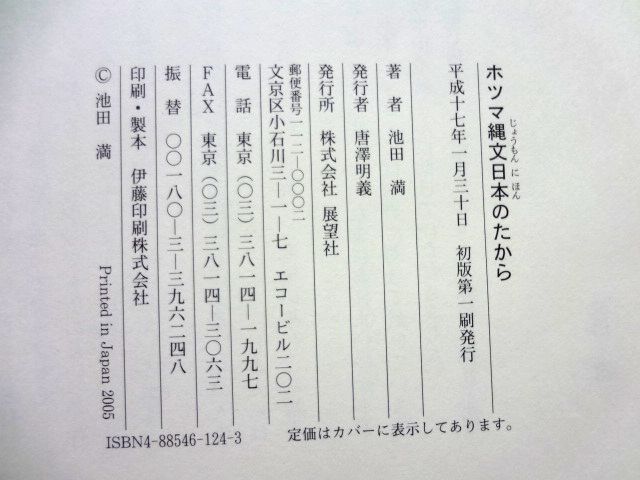 ホツマ縄文日本のたから
じょうもん に ほん
平成十七年一月三十日 初版第一刷発行
著 者 池田 満
発行者 唐澤明義
発行所 株式会社 展望社
郵便番号一一二―〇〇〇二
文京区小石川三―一―七 エコービル二〇二
電 話 東京(〇三)三八一四―一九九七
FAX 東京(〇三)三八一四―三〇六三
振 替 〇〇一八〇―三―三九六二四八
印刷・製本 伊藤印刷株式会社
© 池田 満 Printed in Japan 2005
定価はカバーに表示してあります。
ISBN4-88546-124-3